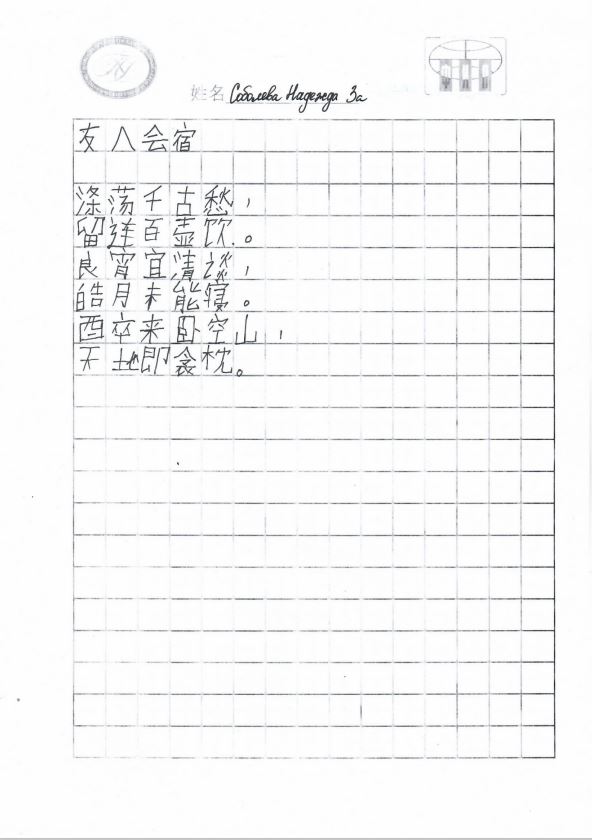 姓名 Соболева Надежда 3а
友人会宿
涤荡千古愁，
留连百壶饮。
良宵宜清谈，
皓月未能寝。
酉卒来卧空山，
天地即衾枕。